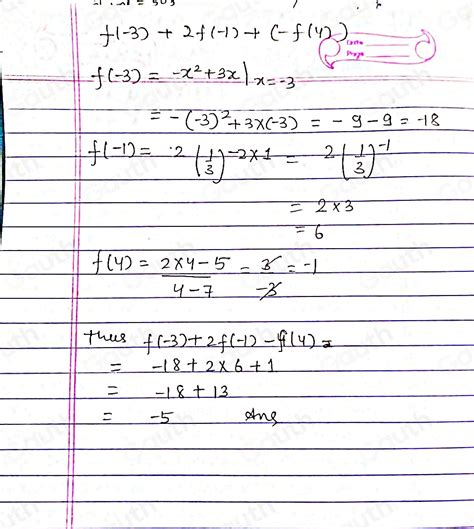 = 503
f(-3) + 2f(-1) + (-f(4))
Date
Page
f(-3) = -x² + 3x | x = -3
= -(-3)² + 3×(-3) = -9 - 9 = -18
f(-1) = 2(1/3)^-2×1 = 2(1/3)^-1
= 2×3
= 6
f(4) = (2×4-5)/(4-7) = 3/-3 = -1
Thus f(-3) + 2f(-1) - f(4) =
= -18 + 2×6 + 1
= -18 + 13
= -5 Ans